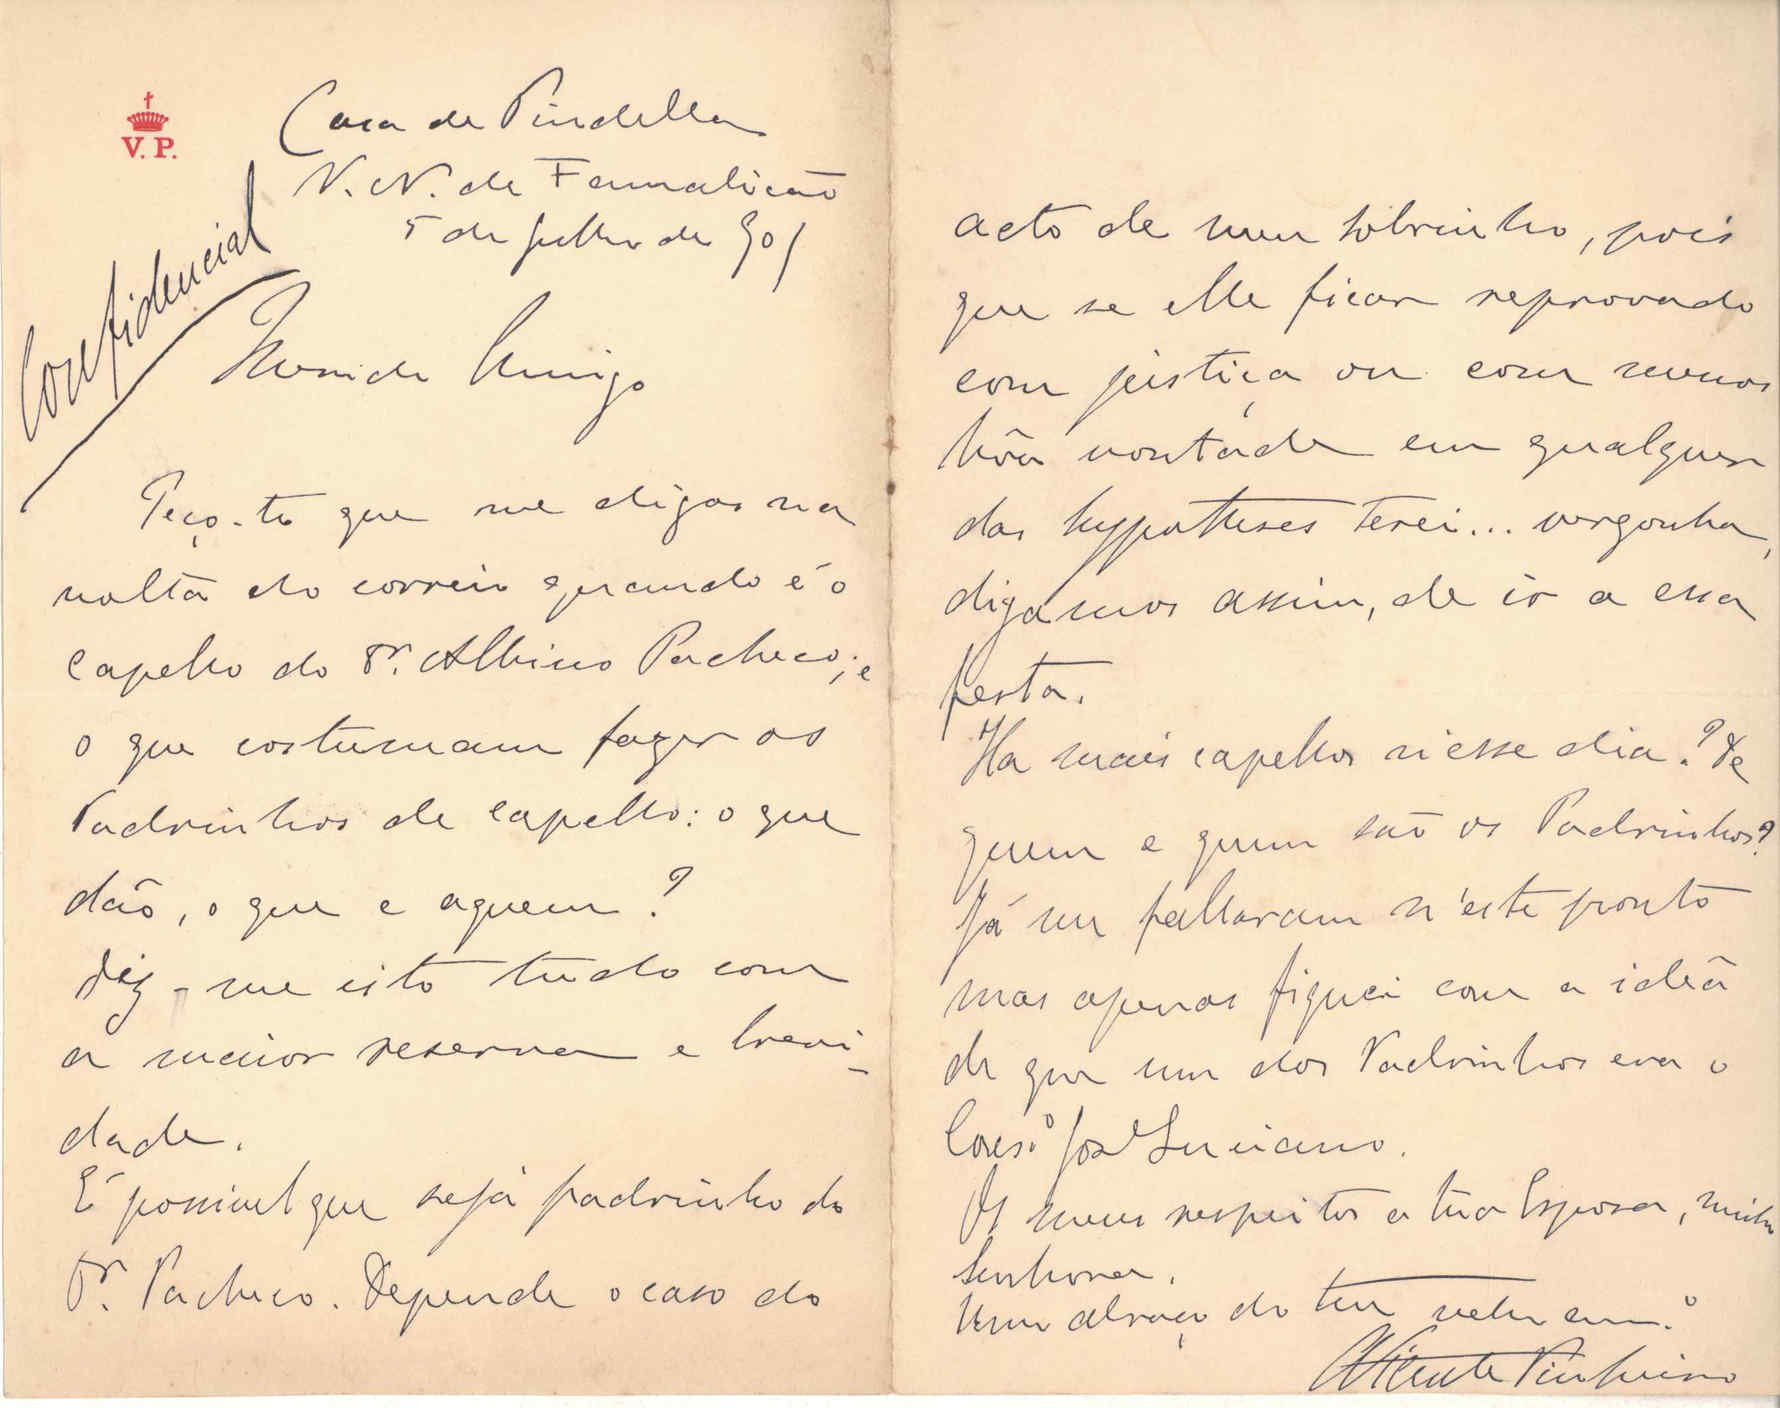 V. P.
Confidencial
Casa de Pindella
V. N. de Famalicão
5 de Julho de 901
Meu Amigo
Peço-te que me digas na
volta do correio quando é o
capello do Dr. Albino Pacheco; e
o que costumam fazer os
Padrinhos de capello: o que
dão, o que e aquem?
Diz-me isto tudo com
a maior reserva e brevi-
dade.
É possivel que seja padrinho do
Dr. Pacheco. Depende o caso do
acto de meu sobrinho, pois
que se elle ficar reprovado
com justiça ou com menos
bôa vontade em qualquer
das hypotheses terei... vergonha,
digamos assim, de ir a essa
festa.
Ha mais capellos n'esse dia? De
quem e quem são os Padrinhos?
Já me fallaram n'este ponto
mas apenas fiquei com a idêa
de que um dos Padrinhos era o
Cons.o José Luciano.
Os meus respeitos a tua Esposa, minha
Senhora.
Um abraço do teu velho am.o
Vicente Pinheiro